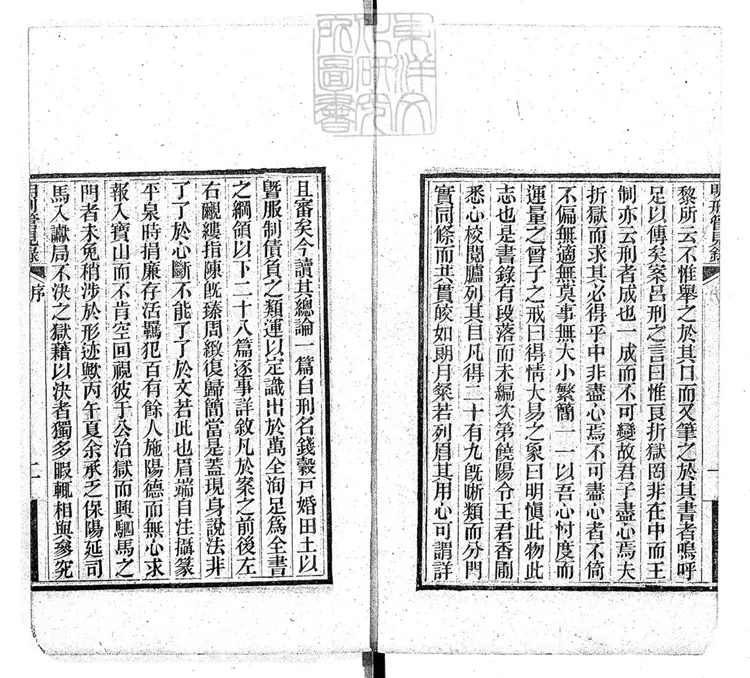 東洋文
化研究
所圖書
明刑管見錄
黎所云不惟舉之於其口而又筆之於其書者嗚呼
足以傳矣案呂刑之言曰惟良折獄罔非在中而王
制亦云刑者成也一成而不可變故君子盡心焉夫
折獄而求其必得乎中非盡心焉不可盡心者不倚
不偏無適無莫事無大小繁簡一一以吾心忖度而
運量之曾子之戒曰得情大易之象曰明愼此物此
志也是書錄有段落而未編次第饒陽令王君香
悉心校閱臚列其目凡得二十有九旣晰類而分門
實同條而共貫皎如朗月粲若列眉其用心可謂詳
且審矣今讀其總論一篇自刑名錢穀戸婚田土以
曁服制債負之類運以定識出於萬全洵足爲全書
之綱領以下二十八篇逐事詳敘凡於案之前後左
右覼縷指陳旣臻周緻復歸簡當是蓋現身說法非
了了於心斷不能了了於文若此也眉端自注攝篆
平泉時捐廉存活羈犯百有餘人施陽德而無心求
報入寶山而不肯空回視彼于公治獄而興駟馬之
門者未免稍涉於形迹歟丙午夏余承乏保陽延司
馬入讞局不決之獄藉以決者獨多暇輒相與參究
明刑管見錄
序
二